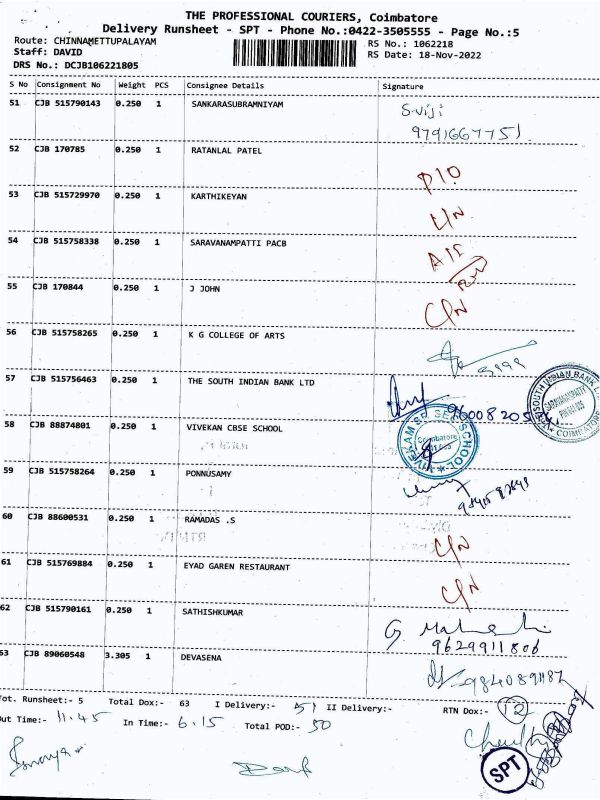 THE PROFESSIONAL COURIERS, Coimbatore
Delivery Runsheet - SPT - Phone No.:0422-3505555 - Page No.:5
Route: CHINNAMETTUPALAYAM RS No.: 1062218
Staff: DAVID RS Date: 18-Nov-2022
DRS No.: DCJB106221805
S No Consignment No Weight PCS Consignee Details Signature
51 CJB 515790143 0.250 1 SANKARASUBRAMNIYAM S.viji
9791667751
52 CJB 170785 0.250 1 RATANLAL PATEL
53 CJB 515729970 0.250 1 KARTHIKEYAN
54 CJB 515758338 0.250 1 SARAVANAMPATTI PACB
55 CJB 170844 0.250 1 J JOHN
56 CJB 515758265 0.250 1 K G COLLEGE OF ARTS
57 CJB 515756463 0.250 1 THE SOUTH INDIAN BANK LTD
SOUTH INDIAN BANK
SARAVANAMPATTY
COIMBATORE
58 CJB 88874801 0.250 1 VIVEKAN CBSE SCHOOL
Coimbatore
59 CJB 515758264 0.250 1 PONNUSAMY
60 CJB 88600531 0.250 1 RAMADAS .S
61 CJB 515769884 0.250 1 EYAD GAREN RESTAURANT
62 CJB 515790161 0.250 1 SATHISHKUMAR
9629911806
63 CJB 89060548 3.305 1 DEVASENA
Tot. Runsheet:- 5 Total Dox:- 63 I Delivery:- 51 II Delivery:- RTN Dox:- 12
Out Time:- 11.45 In Time:- 6.15 Total POD:- 50
SPT